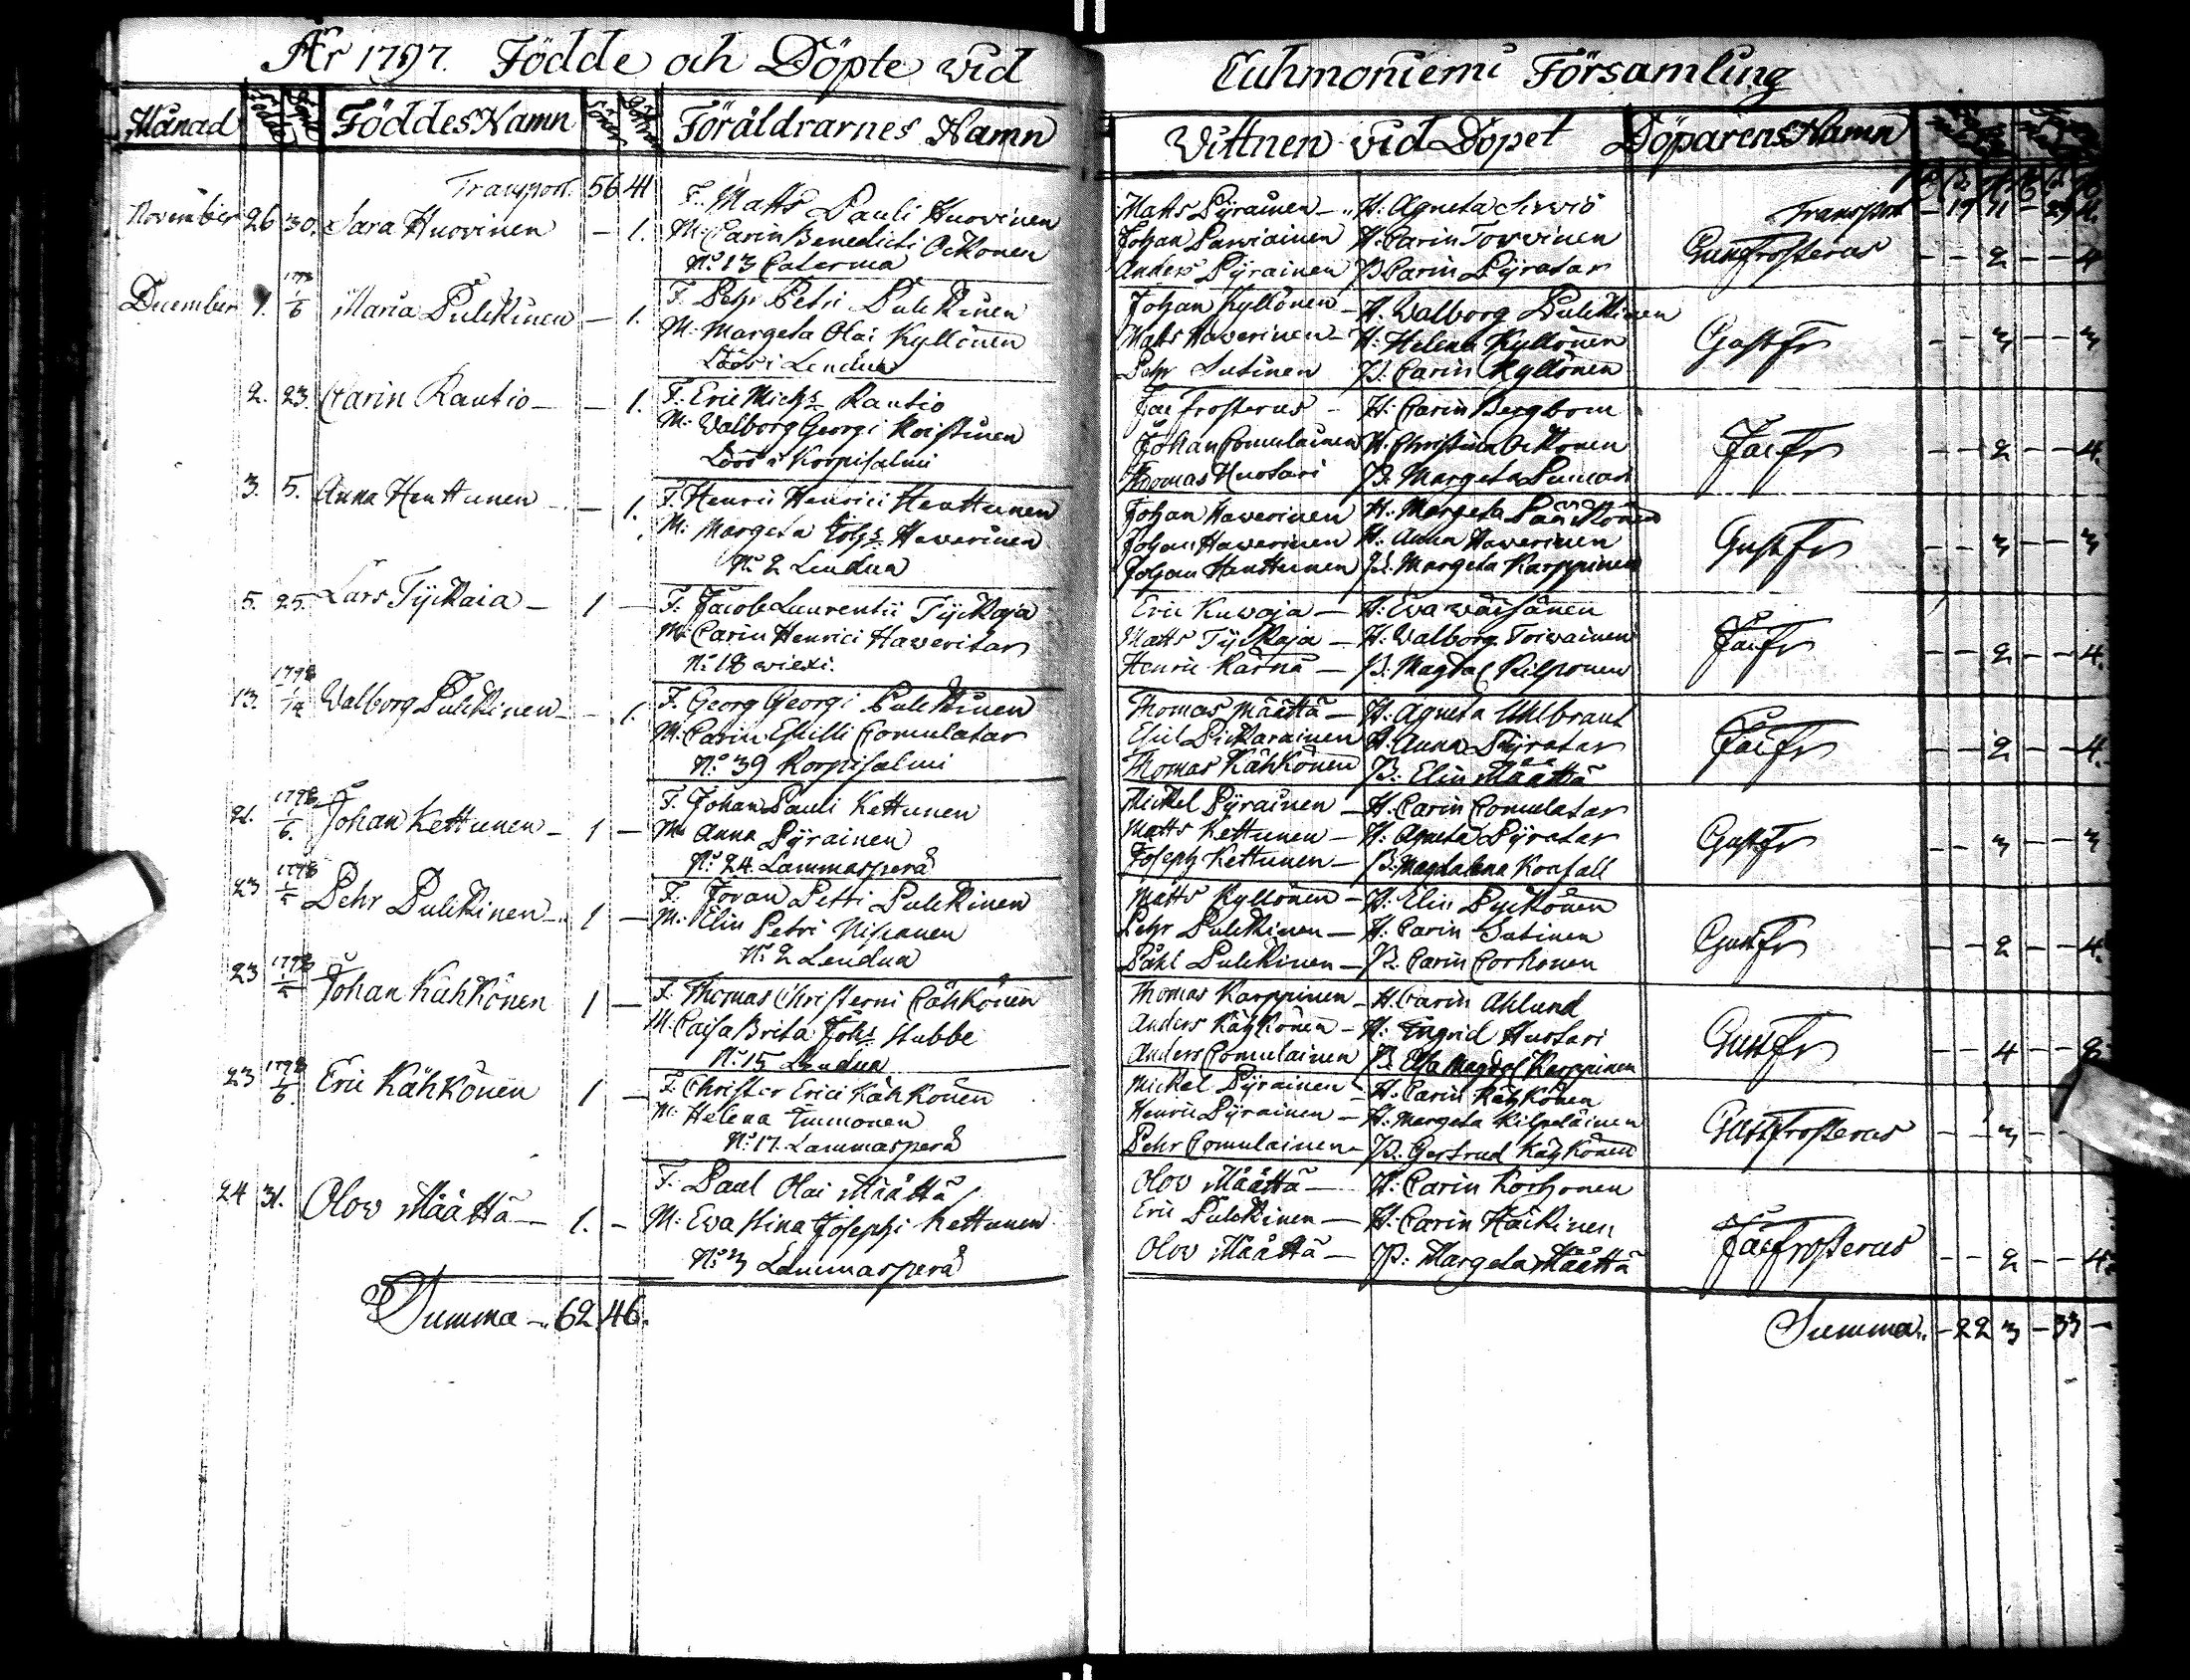 År 1797. Födde och Döpte wid
Månad Födde Döpte Föddes Namn Söner Döttrar Föräldrarnes Namn
Transport. 56 41
November 26 30. Sara Huovinen — 1. F. Matts Pauli Huovinen
M. Carin Benedicti Ockonen
No. 13 Caterma
December 1. 1798 1/6 Maria Pulckinen — 1. F. Pehr Petri Pulckinen
M. Margeta Olai Kyllönen
Löös i Lendua
2. 23. Carin Rautio — — 1. F. Eric Michs Rautio
M. Walborg Georgi Koistinen
Löös i Korpisalmi
3. 5. Anna Henttunen — — 1. F. Henric Henrici Henttunen
M: Margeta Johs Hawerinen
No. 2 Lendua
5. 25. Lars Tyckaia — 1 — F: Jacob Laurentii Tyckaja
M: Carin Henrici Haweritar
No. 18 wiexi.
13. 1798 1/14 Walborg Pulckinen — — 1. F. Georg Georgi Pulckinen
M: Carin Eskilli Comulatar
No. 39 Korpisalmi
21. 1798 1/6. Johan Kettunen — 1 — F. Johan Pauli Kettunen
M Anna Pyrainen
No. 24. Lammasperä
23 1798 1/5 Pehr Pulckinen — 1 — F. Jöran Petri Pulckinen
M. Elin Petri Niskanen
No. 2 Lendua
23 1798 1/5 Johan Kähkönen 1 — F. Thomas Christerni Cähkönen
M. Caisa Brita Johs Stubbe
No. 15 Lendua
23 1798 1/6. Eric Kähkönen 1 — F. Christer Erici Kähkönen
M. Helena Timmonen
No. 17. Lammasperä
24 31. Olov Määttä — 1. — F. Paul Olai Määttä
M: Eva Kina Josephi Kettunen
No. 3 Lammasperä
Summa — 62. 46.
Cuhmoniemi Församling
Wittnen vid Döpet Döparens Namn
Transport — 19 11 — 29 11.
Matts Pyrainen — H. Agneta Sirviö
Johan Parviainen H. Carin Torvinen
Anders Pyrainen P Carin Pyratar Gust Frosterus — — 2 — — 4
Johan Kyllönen — H. Walborg Pulckinen
Matts Hawerinen — H. Helena Kyllönen Gust Fr — — 3 — — 3
Pehr Sutinen P. Carin Kyllönen
Jac Frosterus — H: Carin Bergbom
Johan Comulainen H. Christina Ockonen Jac Fr — — 2 — — 4.
Thomas Huotari P. Margeta
Johan Hawerinen H. Margeta Pääckönen
Johan Hawerinen H. Anna Hawerinen Gust Fr — — 3 — — 3
Johan Henttunen P. Margeta Karppinen
Eric Kuwaja — H: Eva wäisänen
Matts Tyckaja — H: Walborg Toivainen Jac Fr — — 2 — — 4.
Henric Kärnä — P. Magdal Pilponen
Thomas Määttä — H: Agneta Uhlbrant
Eskil Pickarainen H. Anna Pyratar Jac Fr — — 2 — — 4.
Thomas Kähkönen P.: Elin Määttä
Mickel Pyrainen — H. Carin Comulatar
Matts Kettunen — H. Agneta Pyratar Gust Fr — — 3 — — 3
Joseph Kettunen — P: Magdalena
Matts Kyllönen — H. Elin Pyckönen
Pehr Pulckinen — H. Carin Sutinen Gust Fr — — 2 — — 4.
Påhl Pulckinen — P. Carin Corhonen
Thomas Karppinen — H. Carin Ahlund
Anders Käykönen — H. Ingrid Huotari Gust Fr — — 4 — — 2
Anders Comulainen P. Elsa Magdal Karppinen
Mickel Pyrainen — H. Carin Käykönen
Henric Pyrainen — H. Margeta Kilpeläinen Gust Frosterus — — 3 — —
Pehr Comulainen — P. Gertrud Käykönen
Olov Määttä — H. Carin Korhonen
Eric Pulckinen — H. Carin Häikinen
Olov Määttä — P: Margeta Määttä Jac Frosterus — — 2 — — 4.
Summa. — 22 3 — 33 —